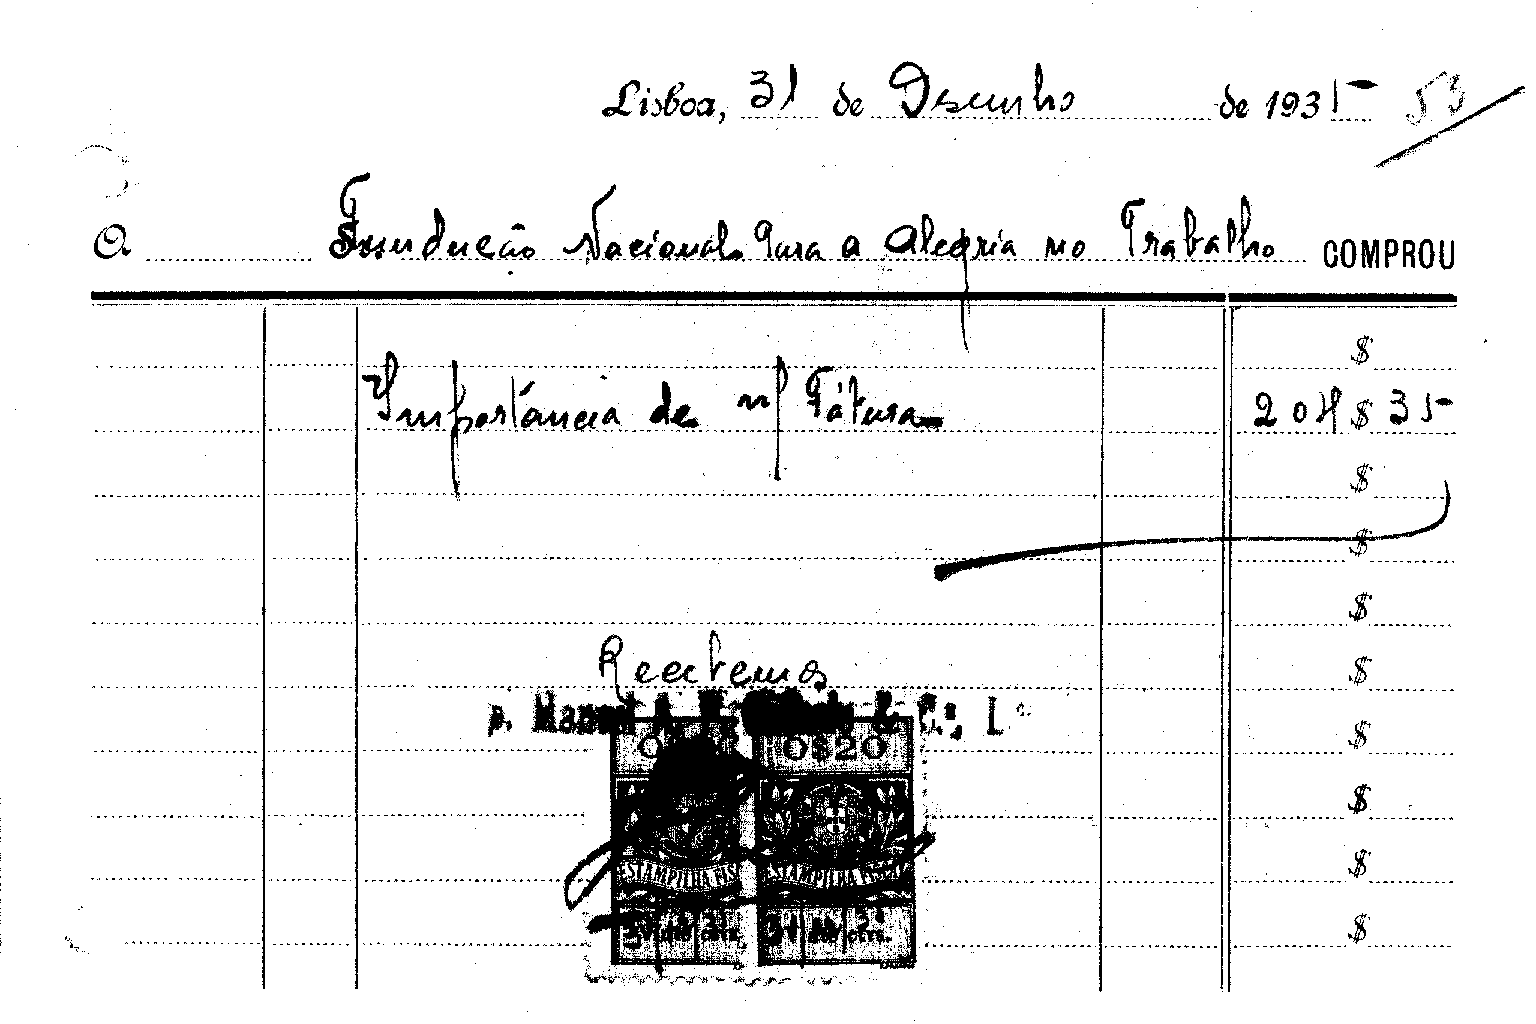 Lisboa, 31 de Dezembro de 1935 53
A Fundação Nacional Para a Alegria no Trabalho COMPROU
$
Importância de n/ Fátura 204 $ 35
$
$
$
Recebemos $
p. Manuel A. & C.ª, L.ª
$
0$20
$
ESTAMPILHA FIS ESTAMPILHA FISCAL $
31 $